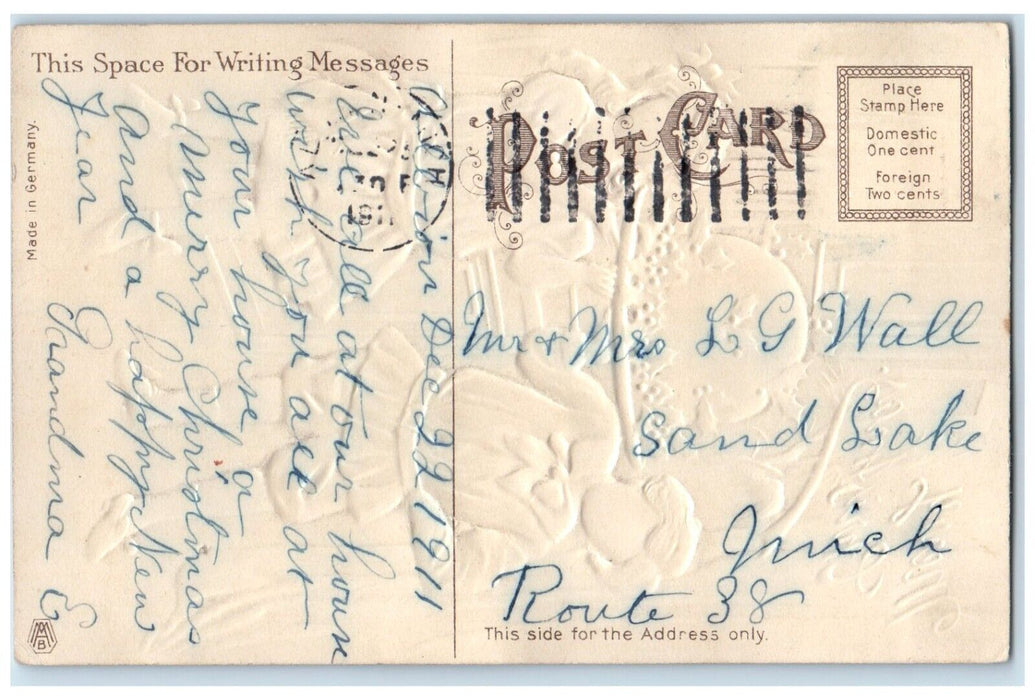 This Space For Writing Messages
POST CARD
Place
Stamp Here
Domestic
One cent
Foreign
Two cents
Made in Germany.
1911
Dec 22 1911
We all at our house
wish you all at
your house a
Merry Christmas
and a happy New
Year
Grandma E
Mr & Mrs L G Wall
Sand Lake
Mich
Route 38
This side for the Address only.
MAB